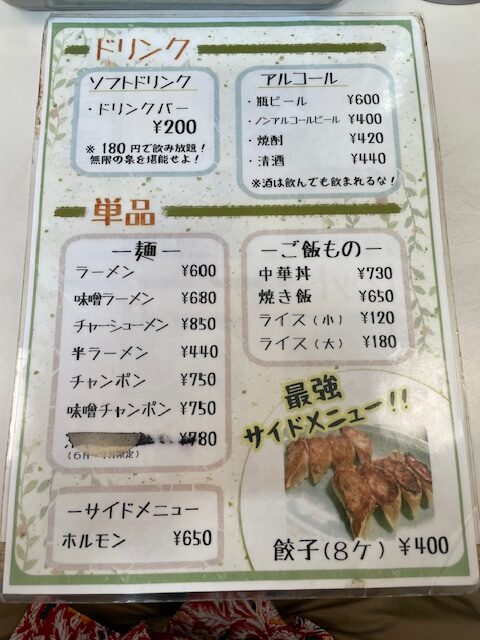 ドリンク
ソフトドリンク
・ドリンクバー
¥200
※180円で飲み放題!
無限の泉を堪能せよ!
アルコール
・瓶ビール ¥600
・ノンアルコールビール ¥400
・焼酎 ¥420
・清酒 ¥440
※酒は飲んでも飲まれるな!
単品
ー麺ー
ラーメン ¥600
味噌ラーメン ¥680
チャーシューメン ¥850
半ラーメン ¥440
チャンポン ¥750
味噌チャンポン ¥750
¥780
ーご飯ものー
中華丼 ¥730
焼き飯 ¥650
ライス(小) ¥120
ライス(大) ¥180
ーサイドメニュー
ホルモン ¥650
最強
サイドメニュー!!
餃子(8ケ) ¥400